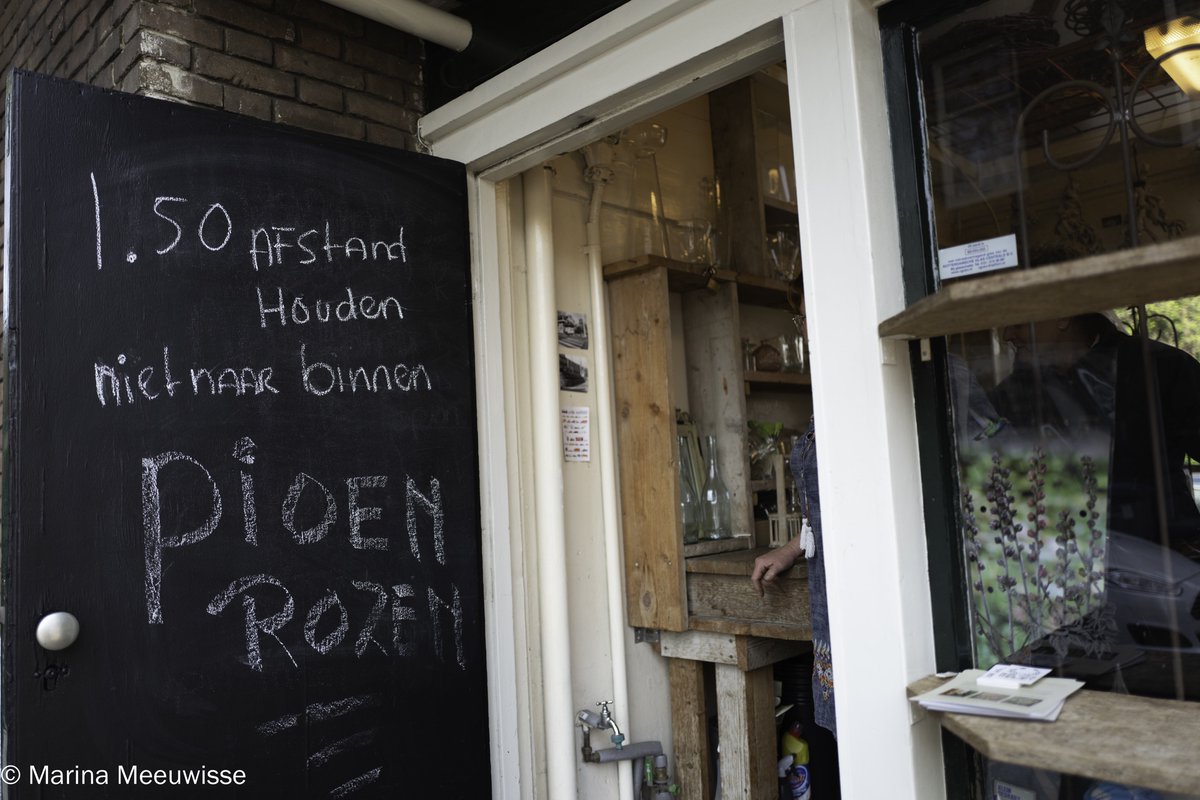 1.50 AFStand
Houden
niet naar binnen
PiOEN
ROZEN
© Marina Meeuwisse